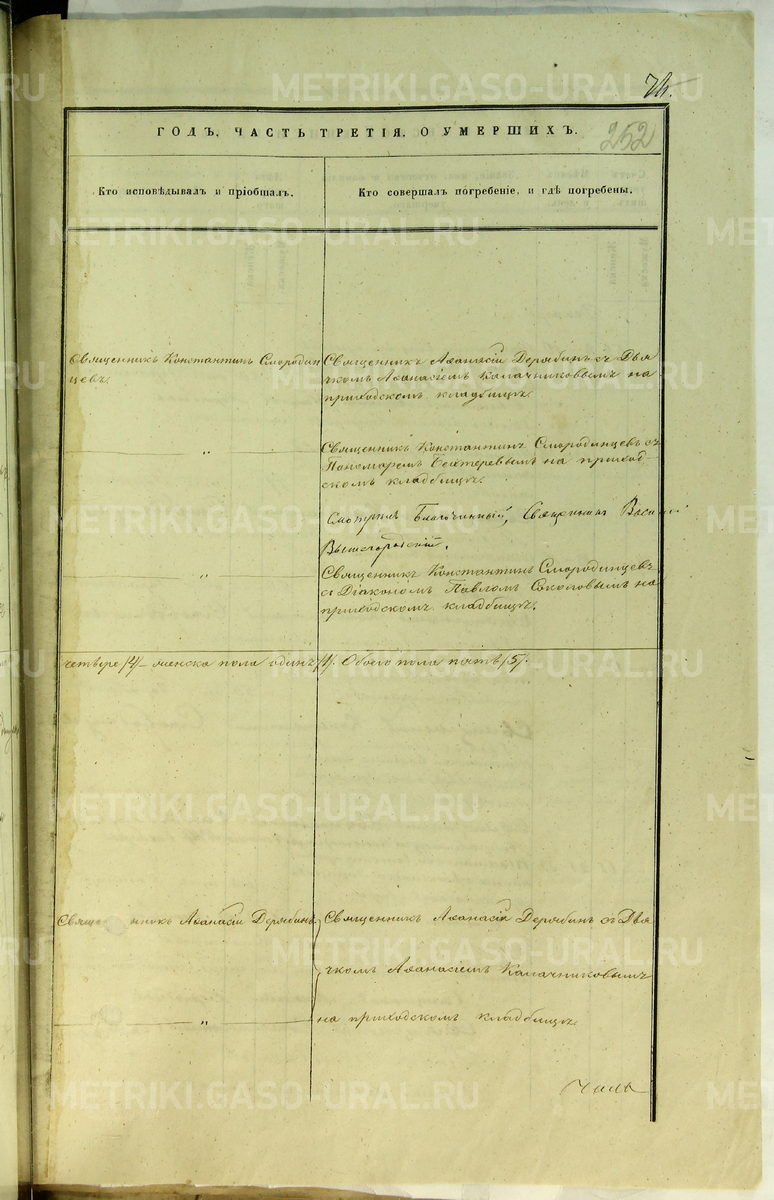 252
ГОДЪ, ЧАСТЬ ТРЕТІЯ, О УМЕРШИХЪ.
Кто исповѣдывалъ и пріобщалъ.
Кто совершалъ погребеніе, и гдѣ погребены.
Священникъ Константинъ Смородин
цевъ.
Священникъ Аѳанасій Дерябинъ съ Дья
чкомъ Аѳанасіемъ Калачниковымъ на
приходскомъ кладбищѣ.
„
Священникъ Константинъ Смородинцевъ съ
Пономаремъ Бехтеревымъ на приход-
скомъ кладбищѣ.
Благочинный, Священникъ
„
Священникъ Константинъ Смородинцевъ
съ Діакономъ Павломъ Соколовымъ на
приходскомъ кладбищѣ.
четверо /4/ – женска пола одинъ /1/. Обоего пола пять /5/.
Священникъ Аѳанасій Дерябинъ.
Священникъ Аѳанасій Дерябинъ съ Дья
чкомъ Аѳанасіемъ Калачниковымъ
„
на приходскомъ кладбищѣ.
METRIKI.GASO-URAL.RU